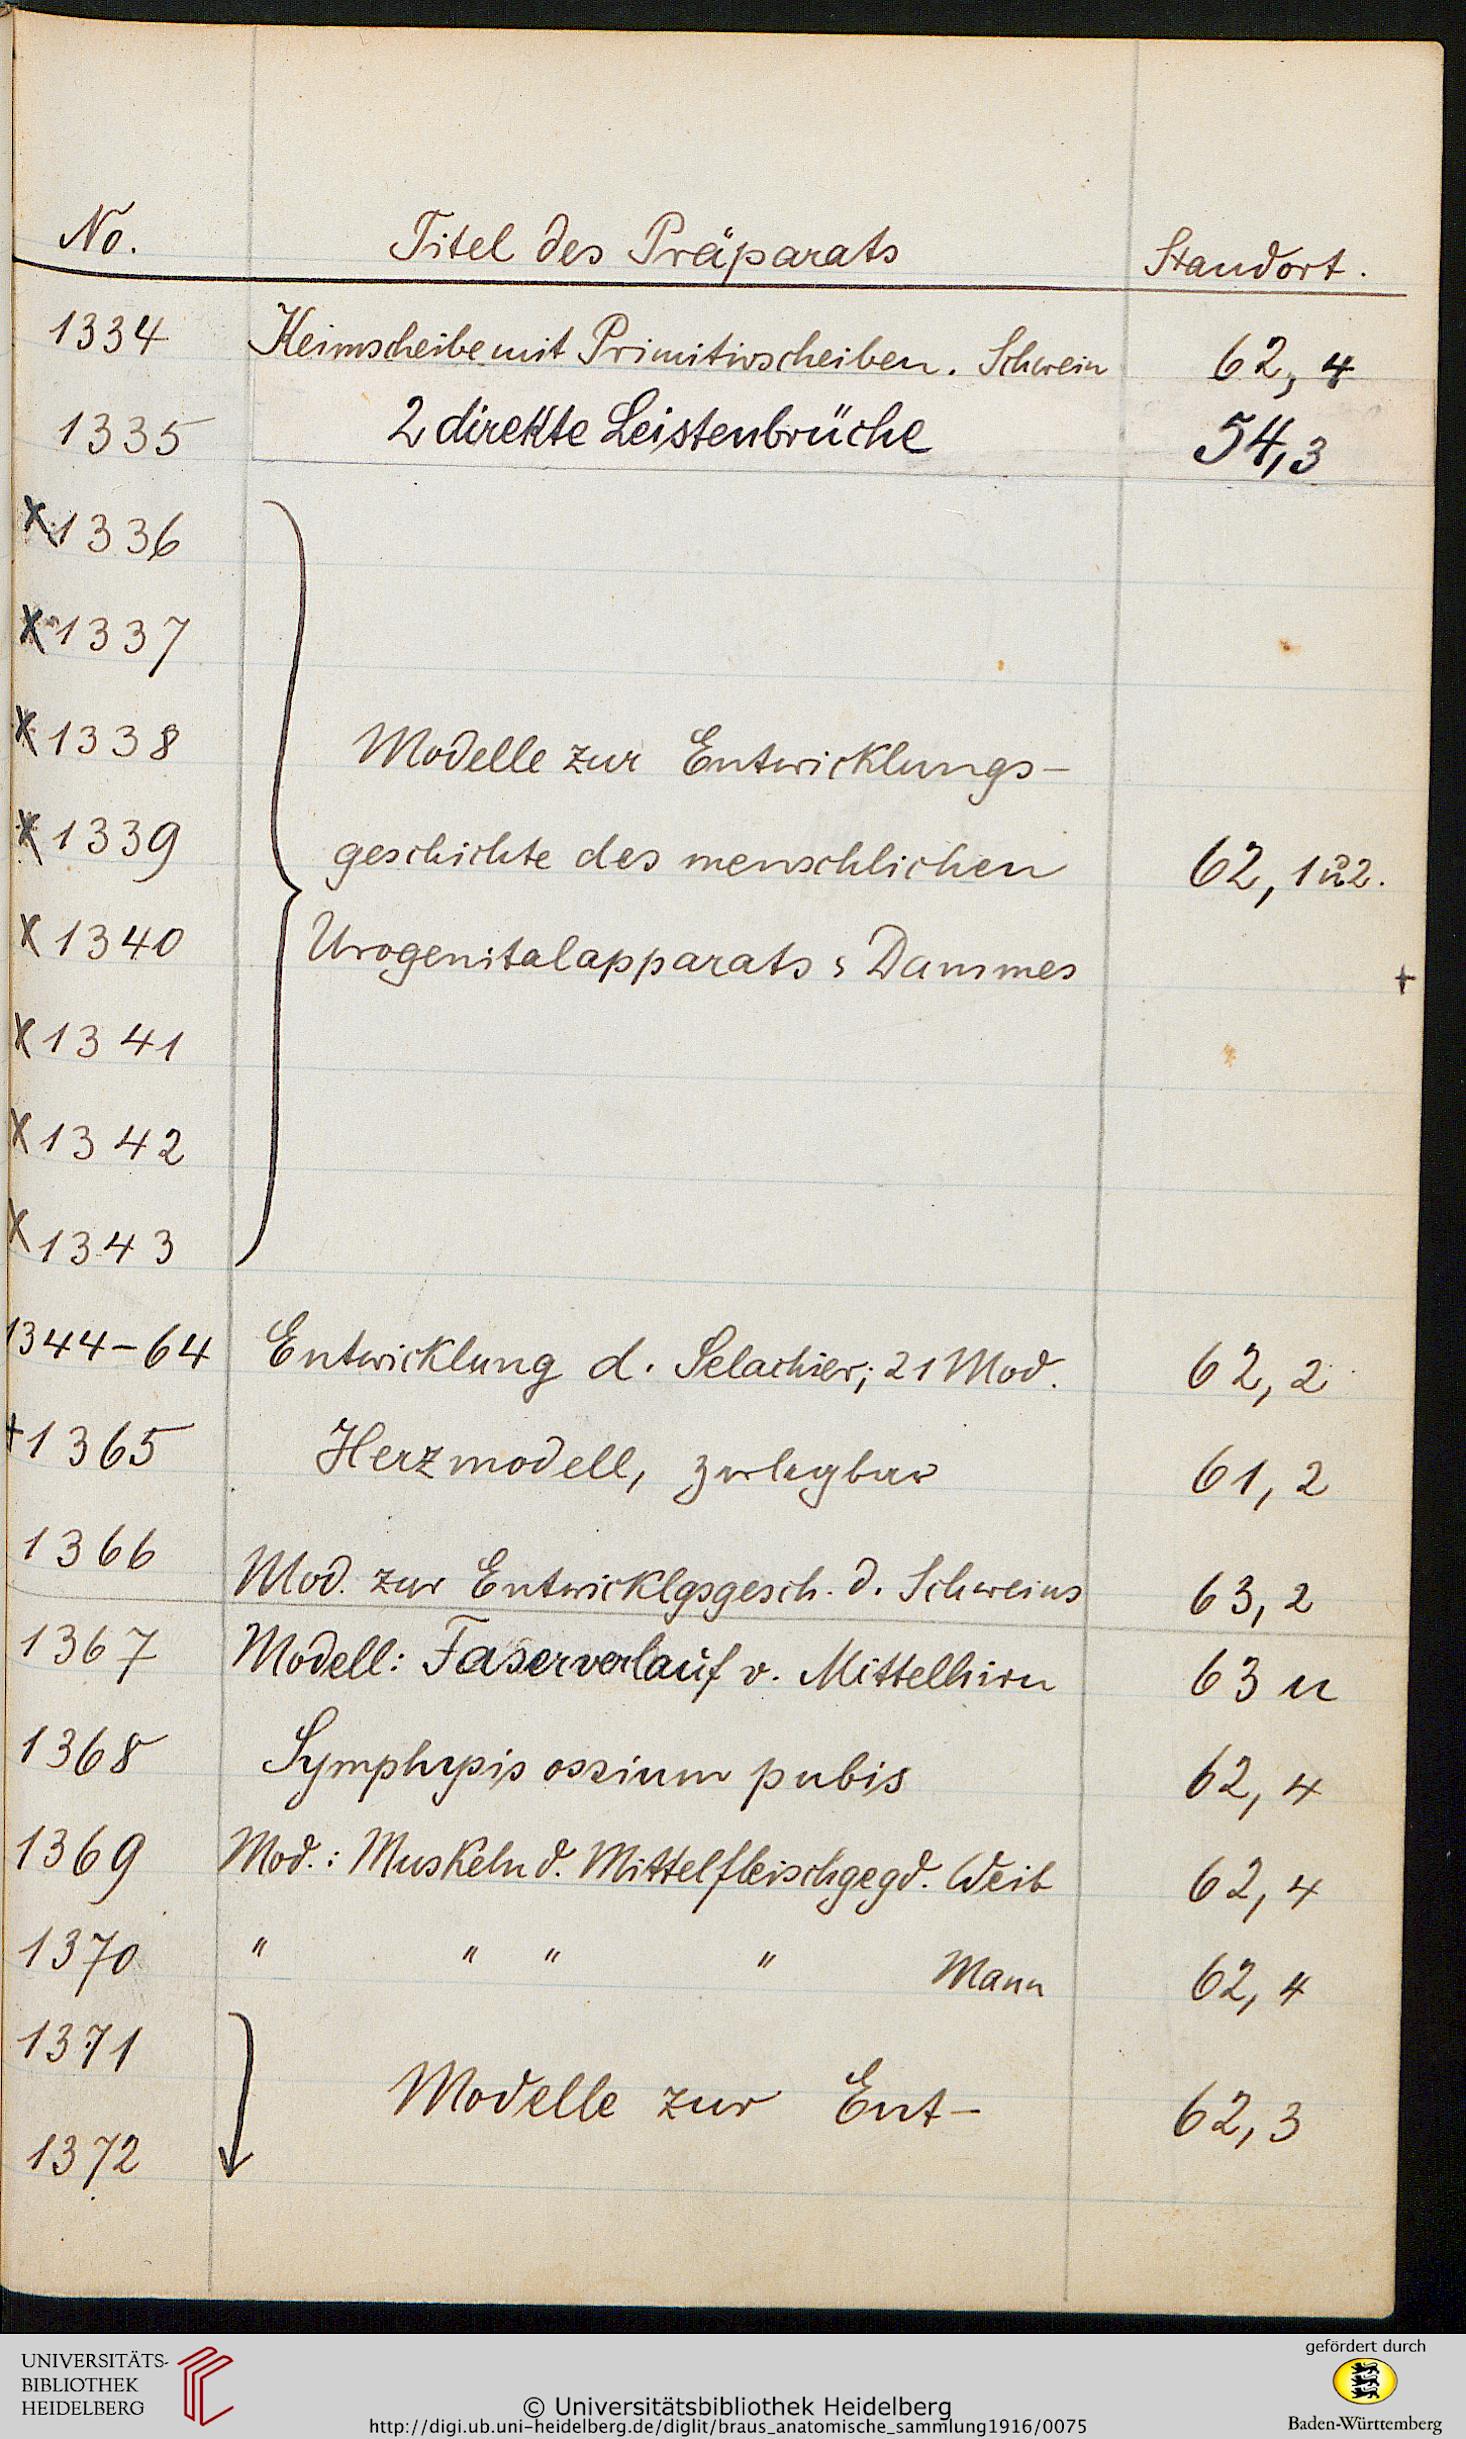 No. Titel des Präparats Standort.
1334 Keimscheibe mit Primitivscheiben. Schwein 62, 4
1335 2 direkte Leistenbrüche 54,3
x 1336
x 1337
x 1338 Modelle zur Entwicklungs-
x 1339 geschichte des menschlichen 62, 1 u 2.
x 1340 Urogenitalapparats & Dammes +
x 1341
x 1342
x 1343
1344-64 Entwicklung d. Selachier; 21 Mod. 62, 2
+1365 Herzmodell, zerlegbar 61, 2
1366 Mod. zur Entwicklgsgesch. d. Schweins 63, 2
1367 Modell: Faserverlauf v. Mittelhirn 63 u
1368 Symphysis ossium pubis 62, 4
1369 Mod.: Muskeln d. Mittelfleischgegd. Weib 62, 4
1370 " " " " Mann 62, 4
1371
Modelle zur Ent- 62, 3
1372
UNIVERSITÄTS-
BIBLIOTHEK
HEIDELBERG
© Universitätsbibliothek Heidelberg
http://digi.ub.uni-heidelberg.de/diglit/braus_anatomische_sammlung1916/0075
gefördert durch
Baden-Württemberg